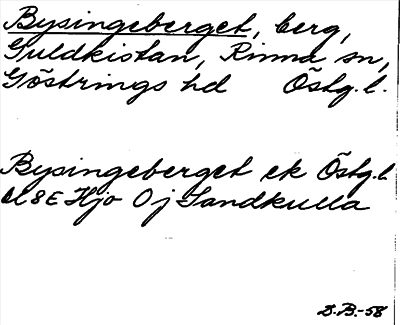 Bysingeberget, berg,
Guldkistan, Rinna sn,
Göstrings hd Östg. l.
Bysingeberget ek Östg. l
8E Hjo 0j Sandkulla
D.B.-58